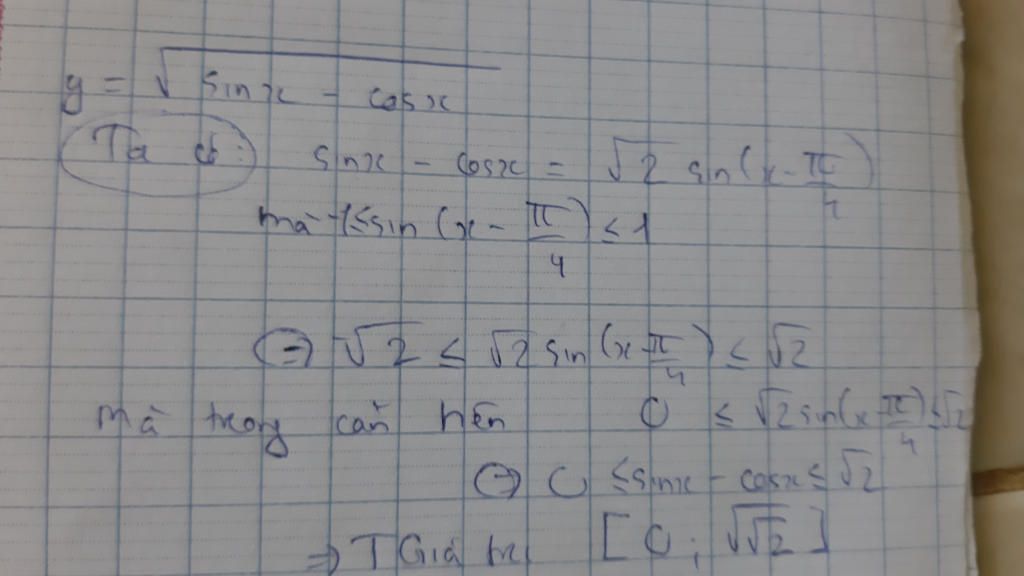 y = √(sinx - cosx)
Ta có: sinx - cosx = √2 sin(x - π/4)
mà -1 ≤ sin(x - π/4) ≤ 1
⇔ √2 ≤ √2 sin(x - π/4) ≤ √2
mà trong căn nên 0 ≤ √2 sin(x - π/4) ≤ √2
⇔ 0 ≤ sinx - cosx ≤ √2
⇒ T Giá trị [0; √√2]